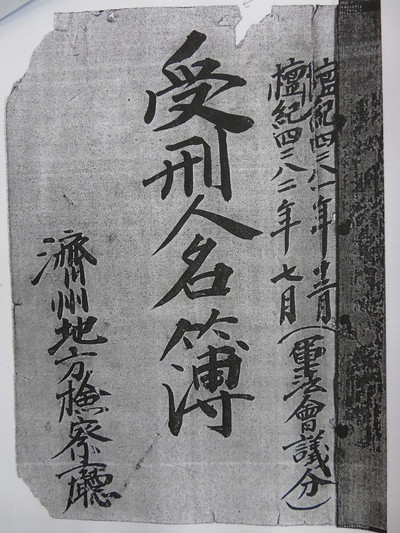 檀紀四二八一年 十二月
檀紀四二八二年 七月 (軍法會議分)
受刑人名簿
濟州地方檢察廳